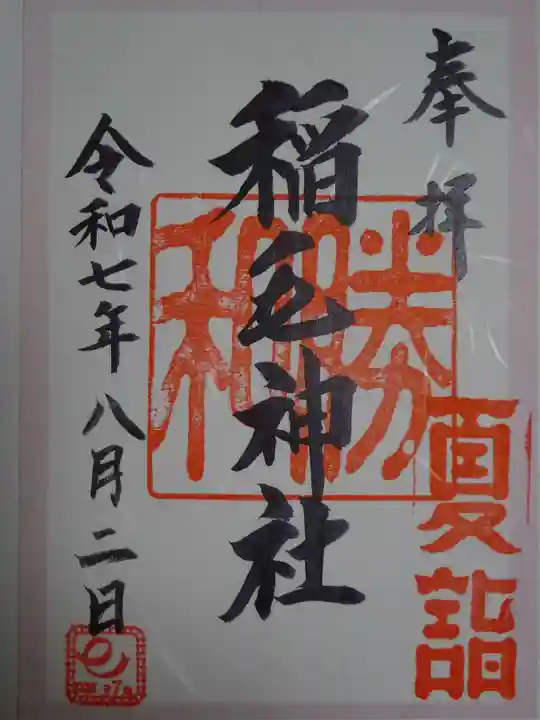 奉拝
夏詣
稲毛神社
令和七年八月二日